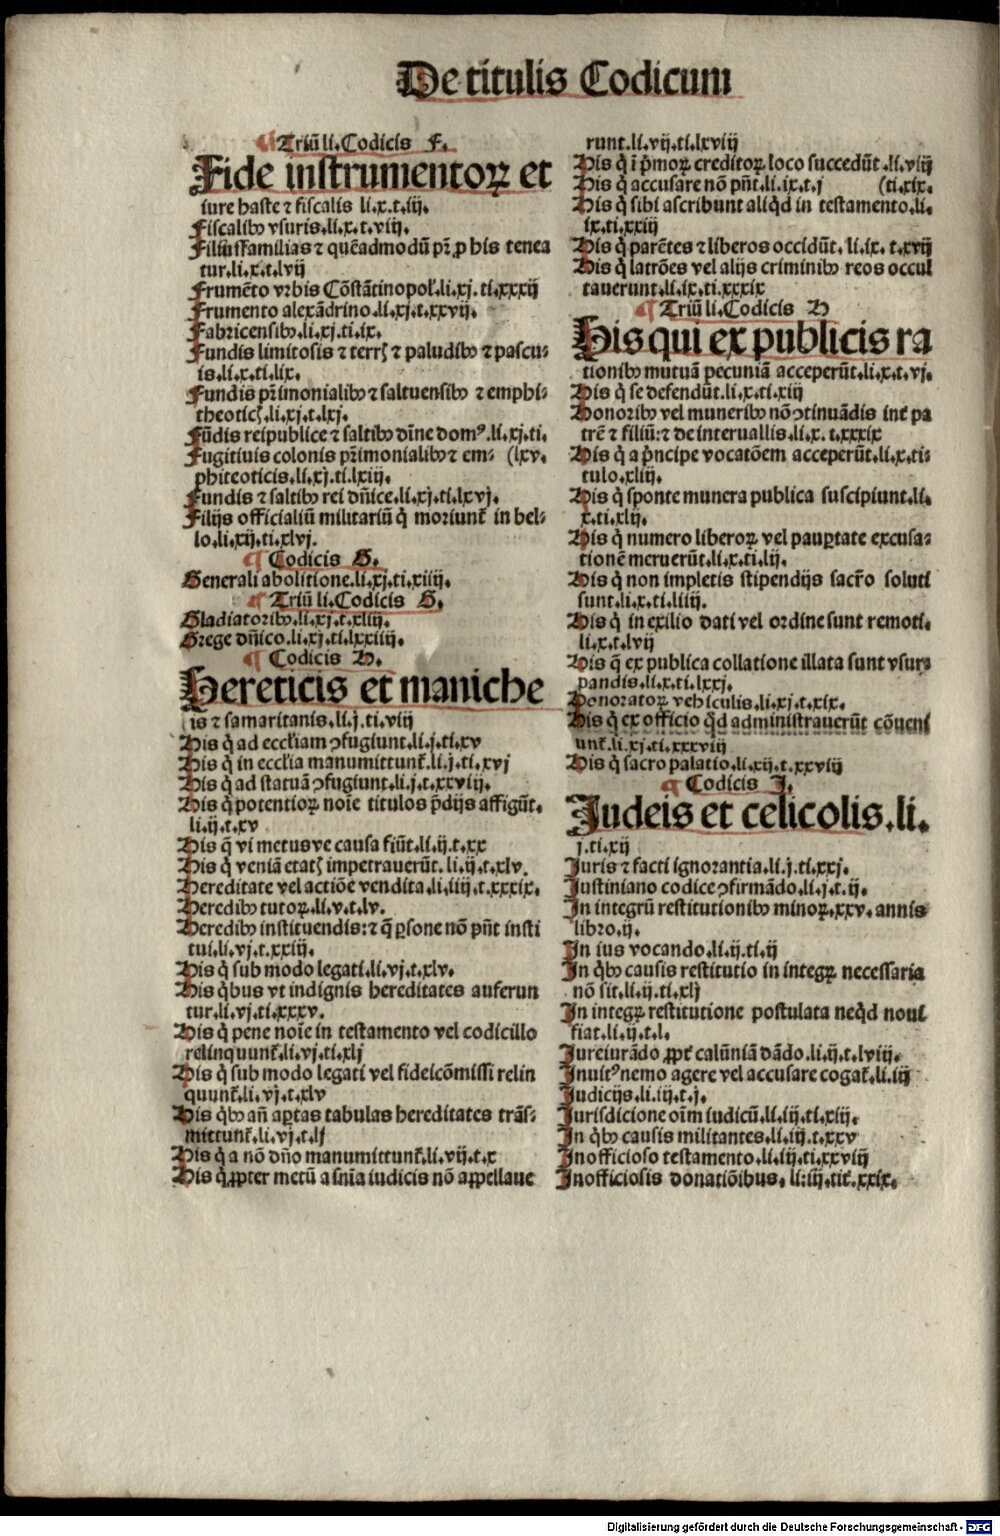 De titulis Codicum
¶ Triū li. Codicis F.
Fide instrumentoꝝ et
iure haste ⁊ fiscalis li.x.t.iij.
Fiscalibꝰ vsuris.li.x.t.viij.
Filiusfamilias ⁊ quēadmodū pr̄ ꝓ his tenea
tur.li.x.t.lvij
Frumēto vrbis Cōstātinopol̓.li.xj.ti.xxxij
Frumento alexādrino.li.xj.t.xxvij.
Fabricensibꝰ.li.xj.ti.ix.
Fundis limitosis ⁊ terrꝭ ⁊ paludibꝰ ⁊ pascu⸗
is.li.x.ti.lix.
Fundis pr̄imonialibꝰ ⁊ saltuensibꝰ ⁊ emphi⸗
theoticꝭ.li.xj.t.lxj.
Fūdis reipublice ⁊ saltibꝰ dīne domꝰ.li.xj.ti.
Fugitiuis colonis pr̄imonialibꝰ ⁊ em⸗ (lxv.
phiteoticis.li.xj.ti.lxiij.
Fundis ⁊ saltibꝰ rei dn̄ice.li.xj.ti.lxvj.
Filijs officialiū militariū q̇ moriunt̄ in bel⸗
lo.li.xij.ti.xlvj.
¶ Codicis G.
Generali abolitione.li.xj.ti.xiiij.
¶ Triū li. Codicis G.
Gladiatoribꝰ.li.xj.t.xliij.
Grege dn̄ico.li.xj.ti.lxxiiij.
¶ Codicis H.
Hereticis et maniche
is ⁊ samaritanis.li.j.ti.viij
His q̇ ad eccl̓iam ↄfugiunt.li.j.ti.xv
His q̇ in eccl̓ia manumittunt̄.li.j.ti.xvj
His q̇ ad statuā ↄfugiunt.li.j.t.xxviij.
His q̇ potentioꝝ noīe titulos p̄dijs affigūt.
li.ij.t.xv
His q̄ vi metusve causa fiūt.li.ij.t.xx
His q̇ veniā etatꝭ impetrauerūt.li.ij.t.xlv.
Hereditate vel actiōe vendita.li.iiij.t.xxxix.
Heredibꝰ tutoꝝ.li.v.t.lv.
Heredibꝰ instituendis:⁊ q̄ ꝑsone nō pn̄t insti
tui.li.vj.t.xxiij.
His q̄ sub modo legati.li.vj.t.xlv.
His q̇bus vt indignis hereditates auferun
tur.li.vj.ti.xxxv.
His q̄ pene noīe in testamento vel codicillo
relinquunt̄.li.vj.ti.xlj
His q̄ sub modo legati vel fideicōmissi relin
quunt̄.li.vj.t.xlv
His q̇bꝰ an̄ aꝑtas tabulas hereditates trās⸗
mittunt̄.li.vj.t.lj
His q̇ a nō dn̄o manumittunt̄.li.vij.t.x
His q̇ ꝓpter metū a sn̄ia iudicis nō appellaue
runt.li.vij.ti.lxviij
His q̇ ī p̄moꝝ creditoꝝ loco succedūt.li.viij
His q̇ accusare nō pn̄t.li.ix.t.j (ti.xix.
His q̇ sibi ascribunt aliq̇d in testamento.li.
ix.ti.xxiij
His q̇ parētes ⁊ liberos occidūt.li.ix.t.xvij
His q̇ latrōes vel alijs criminibꝰ reos occul
tauerunt.li.ix.ti.xxxix
¶ Triū li. Codicis H
His qui ex publicis ra
tionibꝰ mutuā pecuniā acceperūt.li.x.t.vj.
His q̇ se defendūt.li.x.ti.xij
Honoribꝰ vel muneribꝰ nō ↄtinuādis int̄ pa
trē ⁊ filiū:⁊ de interuallis.li.x.t.xxxix
His q̇ a p̄ncipe vocatōem acceperūt.li.x.ti⸗
tulo.xliij.
His q̇ sponte munera publica suscipiunt.li.
x.ti.xlij.
His q̇ numero liberoꝝ vel pauꝑtate excusa⸗
tionē meruerūt.li.x.ti.lij.
His q̇ non impletis stipendijs sacr̄o soluti
sunt.li.x.ti.liiij.
His q̇ in exilio dati vel ordine sunt remoti.
li.x.t.lvij
His q̄ ex publica collatione illata sunt vsur⸗
pandis.li.x.ti.lxxj.
Honoratoꝝ vehiculis.li.xj.t.xix.
His q̇ ex officio q̇d administrauerūt cōueni
unt̄.li.xj.ti.xxxviij
His q̇ sacro palatio.li.xij.t.xxviij
¶ Codicis I.
Judeis et celicolis.li.
j.ti.xij
Juris ⁊ facti ignorantia.li.j.ti.xxj.
Justiniano codice ↄfirmādo.li.j.t.ij.
In integrū restitutionibꝰ minoꝝ.xxv.annis
libro.ij.
In ius vocando.li.ij.ti.ij
In q̇bꝰ causis restitutio in integꝝ necessaria
nō sit.li.ij.ti.xlj
In integꝝ restitutione postulata neq̇d noui
fiat.li.ij.t.l.
Jureiurādo ꝓpt̄ calūniā dādo.li.ij.t.lviij.
Inuitꝰ nemo agere vel accusare cogat̄.li.iij
Judicijs.li.iij.t.j.
Jurisdicione oīm iudicū.li.iij.ti.xiij.
In q̇bꝰ causis militantes.li.iij.t.xxv
Inofficioso testamento.li.iij.ti.xxviij
Inofficiosis donatiōibus.li:iij.tit̄.xxix.
Digitalisierung gefördert durch die Deutsche Forschungsgemeinschaft - DFG